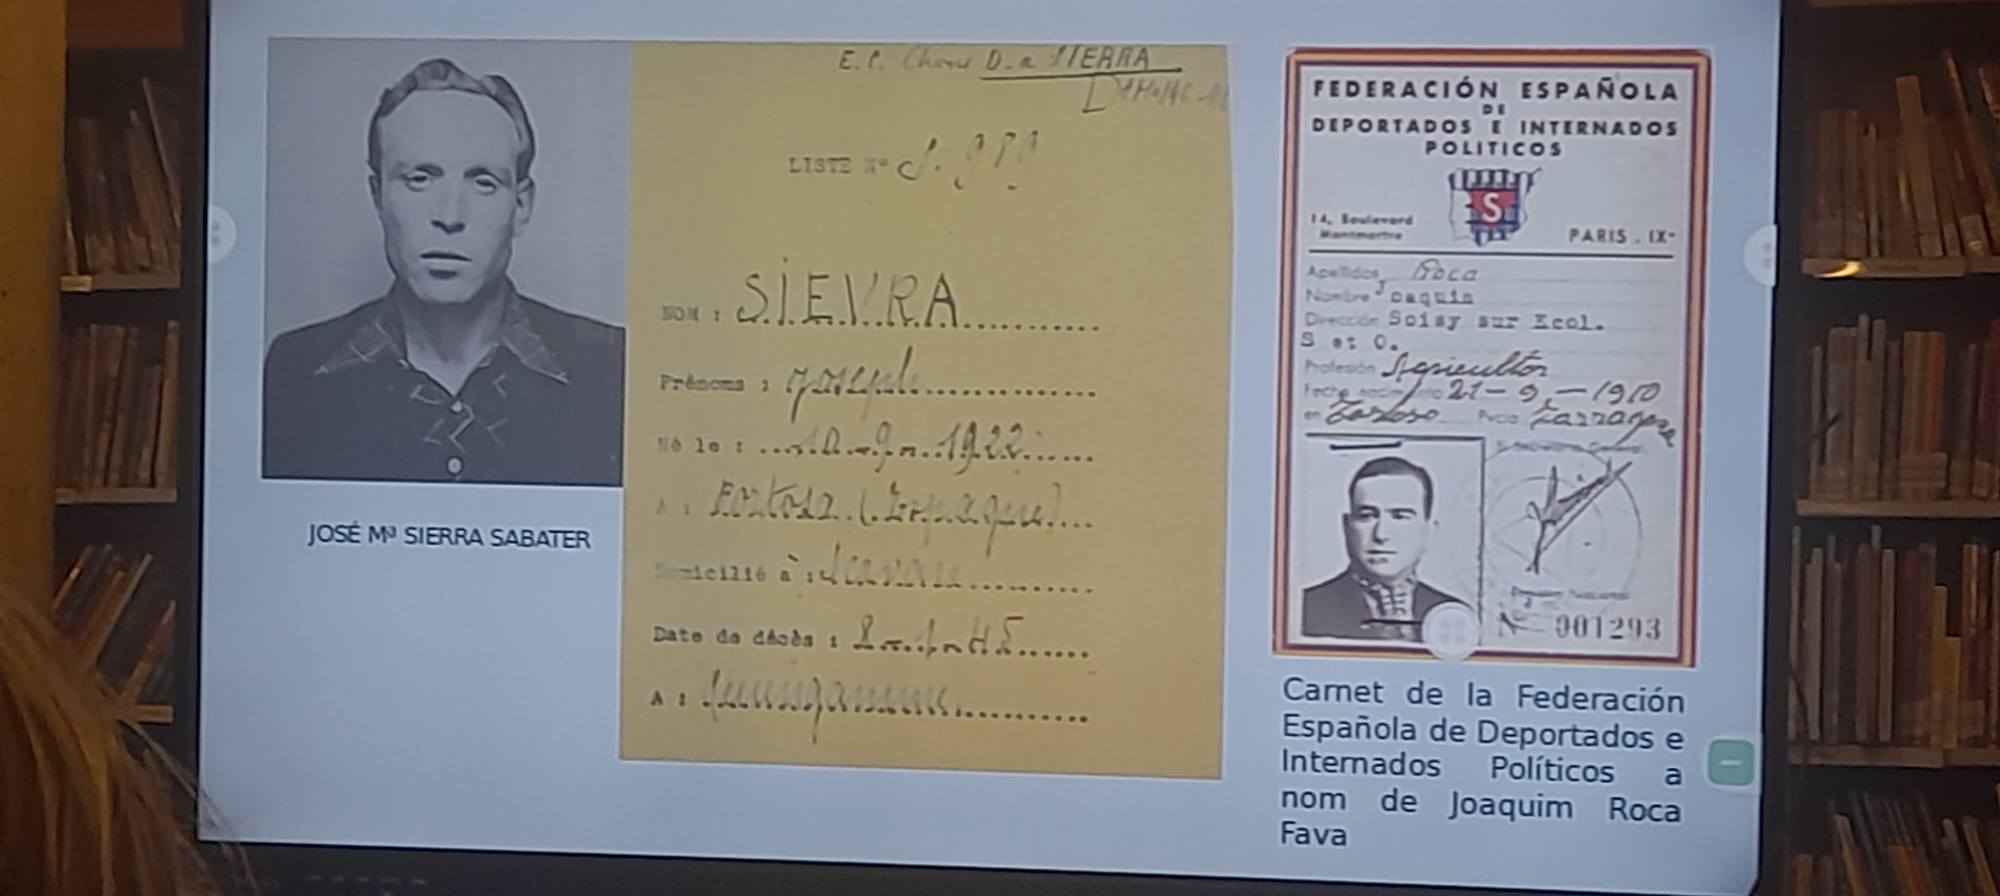 JOSÉ Mª SIERRA SABATER
E.P. D_a SIERRA
LISTE N° S. 979
NOM : SIEVRA
Prénoms : Joseph
Né le : 10 - 9 - 1922
A : (Espagne)
Domicilié à :
Date de décès : 2 - 1 - 45
A :
FEDERACIÓN ESPAÑOLA
DE
DEPORTADOS E INTERNADOS
POLITICOS
S
14, Boulevard
Montmartre
PARIS . IXº
Apellidos Roca
Nombre Joaquin
Dirección Soisy sur Ecol.
S et O.
Profesión Agricultor
Fecha nacimiento 21-9-1910
en Pvcia
Nº 001293
Carnet de la Federación
Española de Deportados e
Internados Políticos a
nom de Joaquim Roca
Fava